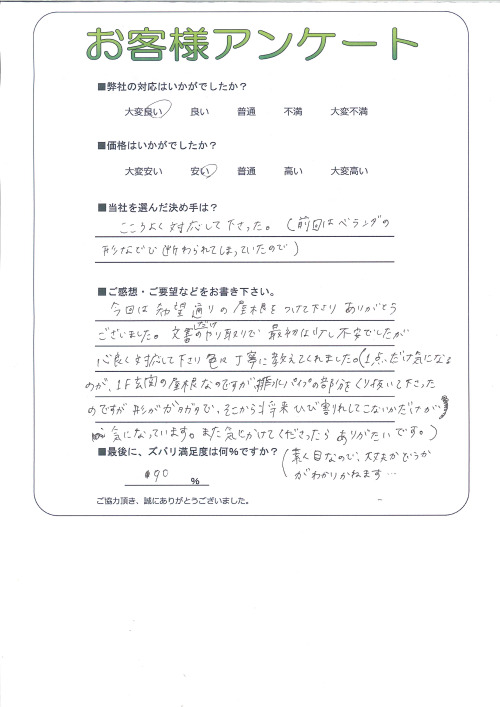 お客様アンケート
■弊社の対応はいかがでしたか？
大変良い 良い 普通 不満 大変不満
■価格はいかがでしたか？
大変安い 安い 普通 高い 大変高い
■当社を選んだ決め手は？
こころよく対応して下さった。（前回はベランダの
形などで断わられてしまっていたので）
■ご感想・ご要望などをお書き下さい。
今回は希望通りの屋根をつけて下さり ありがとう
ございました。文書だけのやり取りで 最初は少し不安でしたが
心良く対応して下さり 色々丁寧に教えてくれました。（1点だけ気になる
のが、1F玄関の屋根なのですが、排水パイプの部分をくり抜いて下さった
のですが 形がガタガタで、そこから将来ひび割れしてこないかだけが
気になっています。また気にかけてくださったら ありがたいです。）
■最後に、ズバリ満足度は何％ですか？
（素人目なので、大丈夫かどうか
がわかりかねます…
90 ％
ご協力頂き、誠にありがとうございました。